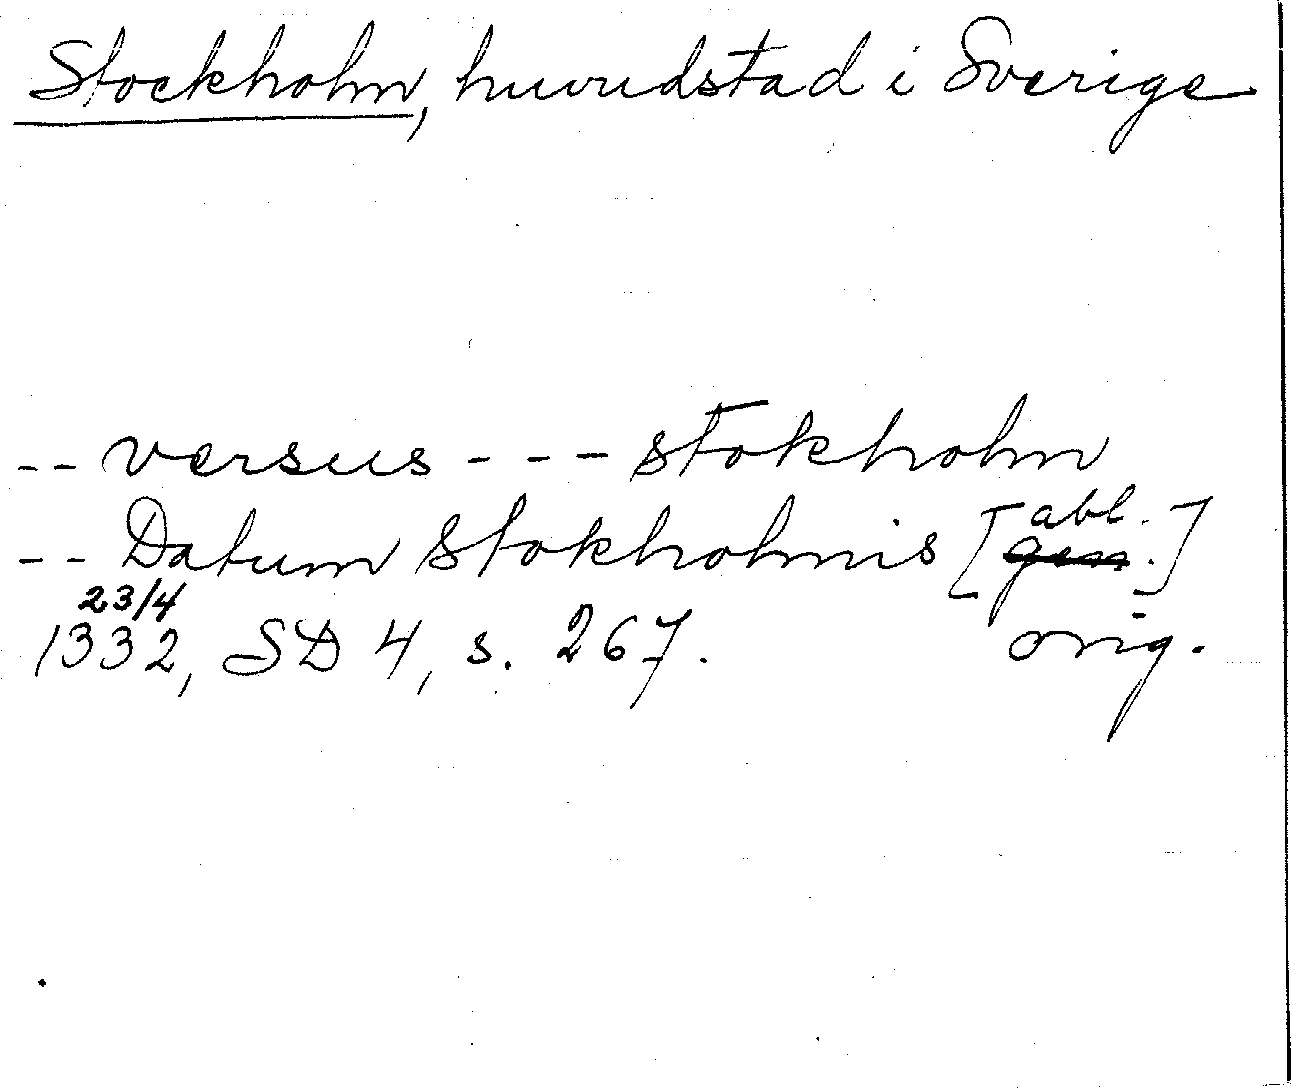 Stockholm, huvudstad i Sverige
-- versus --- stokholm
-- Datum stokholmis [gen. abl.]
23/4
1332, SD 4, s. 267. orig.